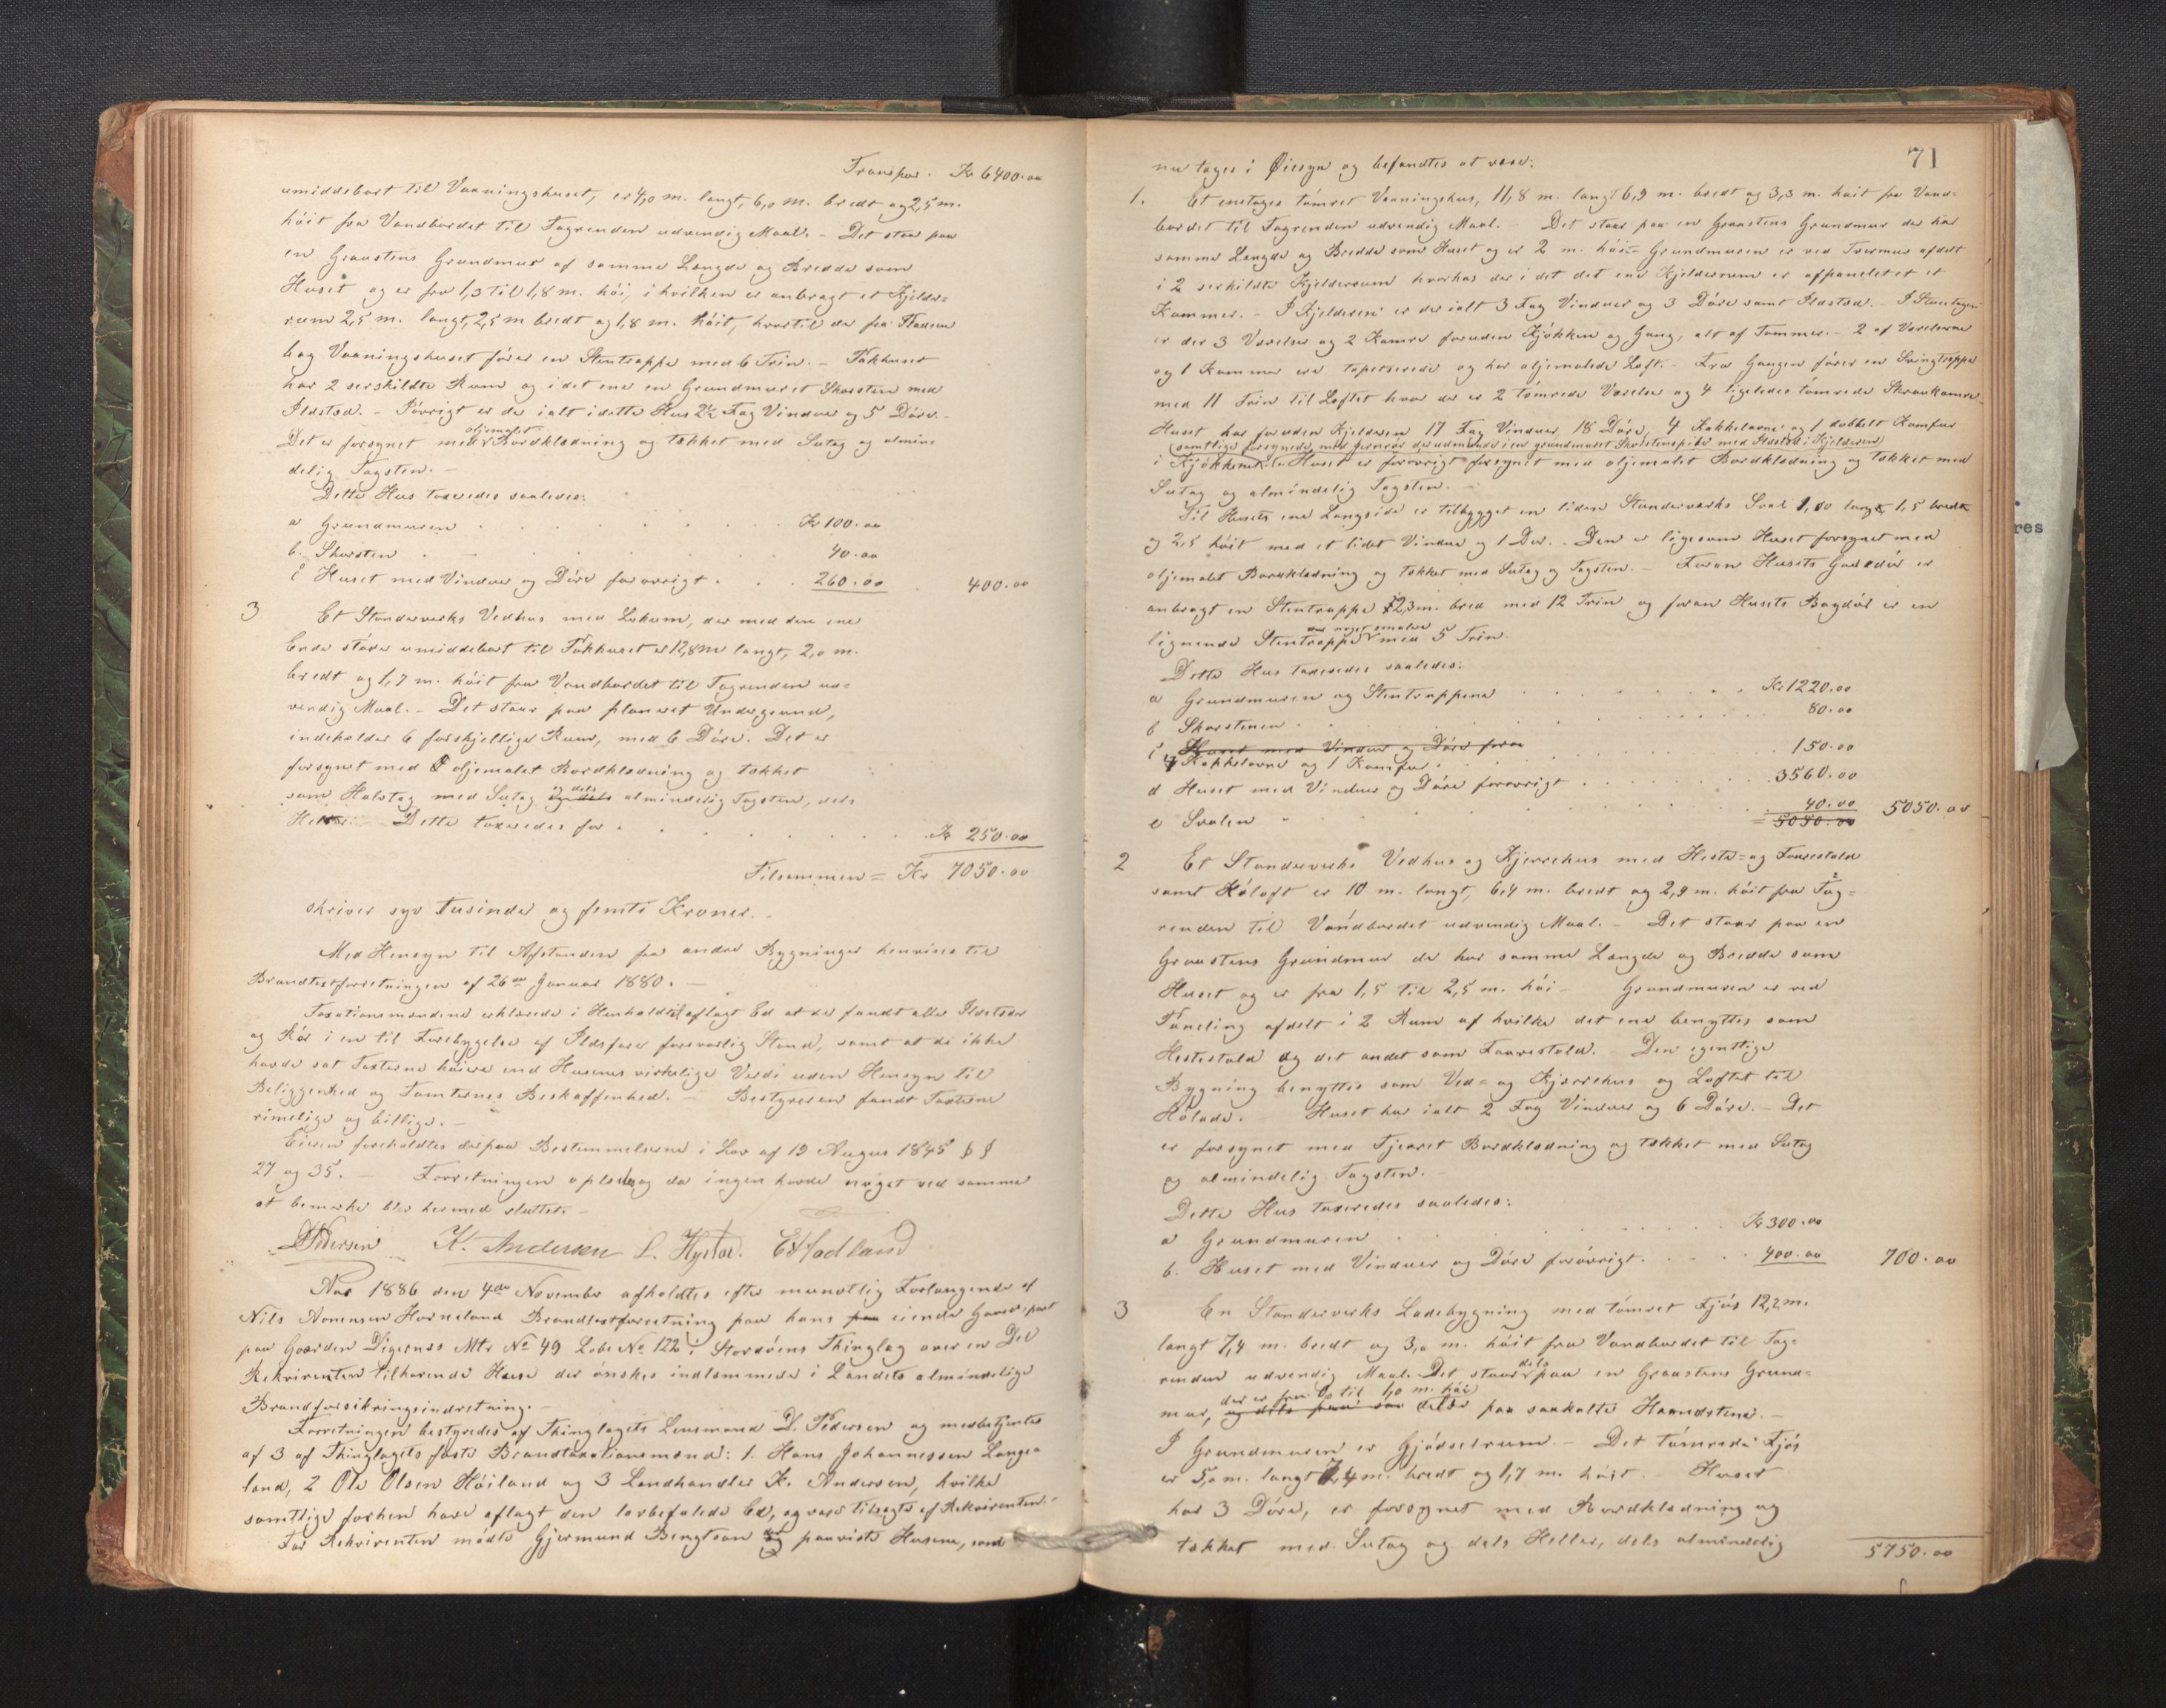 Transpor. Kr 6400.00
umiddelbart til Vaaningshuset, er 4,0 m. langt, 6,0 m. bredt og 2,5 m.
höit fra Vandbordet til Tagrenden udvendig Maal. - Det staar paa
en Graastens Grundmur af samme Længde og Bredde som
Huset og er fra 1,3 til 1,8 m. höi, i hvilken er anbragt et Kjelder=
rum 2,5 m. langt, 2,5 m bredt og 1,8 m. höit, hvortil der fra
bag Vaaningshuset förer en Stentrappe med 6 Trin. -
har 2 serskildte Rum og i det ene en Grundmuret Skorsten med
Ildsted. - Iövrigt er der ialt i dette Hus 2½ Fag Vinduer og 5 Döre. -
oljemalet
Det er forsynet med Bordklædning og tækket med Sutag og almin=
delig Tagsten. -
Dette Hus taxeredes saaledes:
a Grundmuren . . . Kr 100.00
b. Skorsten . . . 40.00
c Huset med Vinduer og Döre forovrigt . . . 260.00 400.00
3 Et Standerverks Vedhus med Lokum, der med den ene
Ende stöder umiddelbart til er 12,8 m langt, 2,0 m.
bredt og 1,7 m. höit fra Vandbordet til Tagrenden ud=
vendig Maal. - Det staar paa planeret Undergrund,
indeholder 6 forskjellige Rum, med 6 Döre. Det er
forsynet med oljemalet Bordklædning og tækket
som Halvtag med Sutag og dels almindelig Tagsten, dels
Heller. Dette taxeredes for . . . Kr 250.00
Tilsammen = Kr 7050.00
skriver syv tusinde og femti Kroner. -
Med Hensyn til Afstanden fra andre Bygninger henvises til
Brandtaxtforretningen af 26de Januar 1880. -
Taxationsmændene erklærede i Henhold til aflagt Ed at de fandt alle Ildsteder
og Rör i en til Forebygelse af Ildsfare forsvarlig Stand, samt at de ikke
havde sat Taxterne höiere end Husenes virkelige Verdi uden Hensyn til
Beliggenhed og Tomternes Beskaffenhed. - Bestyreren fandt Taxterne
rimelige og billige. -
Eieren foreholdtes derpaa Bestemmelserne i Lov af 19 Augus 1845 § §
27 og 35. - Forretningen oplæstes og da ingen havde noget ved samme
at bemerke blev hermed sluttet. -
DPedersen K. Andersen L. Hystad. E Hadland
Aar 1886 den 4de November afholdtes efter mundtlig Forlangende af
Nils Aonensen Horneland Brandtaxtforretning paa hans paa eiende Gaardspart
paa Gaarden Digernæs Mtr No 49 Löbe No 122 i Stordöens Thinglag over en Del
Rekvirenten tilhorende Huse der önskes indlemmede i Landets almindelige
Brandforsikringsindretning. -
Forretningen bestyredes af Thinglagets Lensmand D. Pedersen og medbetjentes
af 3 af Thinglagets faste Brandtaxationsmænd: 1. Hans Johannessen Lange=
land, 2 Ole Olsen Höiland og 3 Landhandler K. Andersen, hvilke
samtlige forhen have aflagt den lovbefalede Ed, og vare tilsagte af Rekvirenten.
For Rekvirenten mödte Gjermund Bengtson og paaviste Husene, som
71
nu toges i Öiesyn og befandtes at være:
1. Et enetages tömret Vaaningshus, 11,8 m. langt 6,9 m. bredt og 3,3 m. höit fra Vand=
bordet til Tagrenden udvendig Maal. - Det staar paa en Graastens Grundmur der har
samme Længde og Bredde som Huset og er 2 m. höi. - Grundmuren er ved Tvermur afdelt
i 2 serskildte Kjelderrum hvorhos der i det det ene Kjelderrum er afpanelet et
Kammer. - I Kjelderen er der ialt 3 Fag Vinduer og 3 Döre samt Ildsted. - I Stueetagen
er der 3 Værelser og 2 Kamre foruden Kjökken og Gang, alt af Tommer. - 2 af Værelserne
og 1 Kammer ere tapetserede og har oljemalede Loft. - Fra Gangen förer en Svingtrappe
med 11 Trin til Loftet hvor der er 2 tömrede Værelser og 4 ligeledes tömrede Skraakamre. -
Huset har foruden Kjelderen 17 Fag Vinduer, 18 Döre, 4 Kakkelovne og 1 dobbelt Komfur
(samtlige forsynede med Jernrör der udmunde i en grundmuret Skorstenspibe med Ildsted i Kjelderen)
i Kjökkenet. - Huset er forovrigt forsynet med oljemalet Bordklædning og tækket med
Sutag og almindelig Tagsten. -
Til Husets ene Langside er tilbygget en liden Standerværks Sval 1,80 langt, 1,5 bredt
og 2,5 höit med et lidet Vindue og 1 Dör. - Den er ligesom Huset forsynet med
oljemalet Bordklædning og tækket med Sutag og Tagsten. - Foran Husets er
anbragt en Stentrappe 2,3 m. bred med 12 Trin og foran Husets Bagdör er en
noget smalere
lignende Stentrappe med 5 Trin.
Dette Hus taxeredes saaledes:
a Grundmuren og Stentrapperne . . . Kr 1220.00
b Skorstenen . . . 80.00
c Huset med Vinduer og Döre forov
4 Kakkelovne og 1 Komfur . . . 150.00
d Huset med Vinduer og Döre forovrigt . . . 3560.00
e Svalen . . . 40.00
5050.00 5050.00
2 Et Standerverks Vedhus og Kjerrehus med Heste= og Faarestald
samt Höloft er 10 m. langt, 6,4 m. bredt og 2,9 m. höit fra Tag=
renden til Vandbordet udvendig Maal. - Det staar paa en
Graastens Grundmur der har samme Længde og Bredde som
Huset og er fra 1,5 til 2,5 m. höi - Grundmuren er ved
Paneling afdelt i 2 Rum af hvilke det ene benyttes som
Hestestald og det andet som Faarestald. - Den egentlige
Bygning benyttes som Ved= og Kjærrehus og Loftet til
Hölade. - Huset har ialt 2 Fag Vinduer og 6 Döre. - Det
er forsynet med Tjæret Bordklædning og tækket med Sutag
og almindelig Tagsten. -
Dette Hus taxeredes saaledes:
a Grundmuren . . . Kr 300.00
b. Huset med Vinduer og Döre forövrigt. . . . 400.00 700.00
3 En Standerverks Ladebygning med tömret Fjös 12,2 m.
langt 7,4 m. bredt og 3,0 m. höit fra Vandbordet til Tag=
dels
renden udvendig Maal. Det staar paa en Graastens Grund=
der er fra til 1,0 m. höi
mur, og dels paa saa dels paa saakalte Haandstene. -
I Grundmuren er Gjödselrum. - Det tömrede Fjös
er 5,0 m. langt 7,4 m. bredt og 1,7 m. höit. - Huset
har 3 Döre, er forsynet med Bordklædning og
tækket med Sutag og dels Heller, dels almindelig
5750.00
res